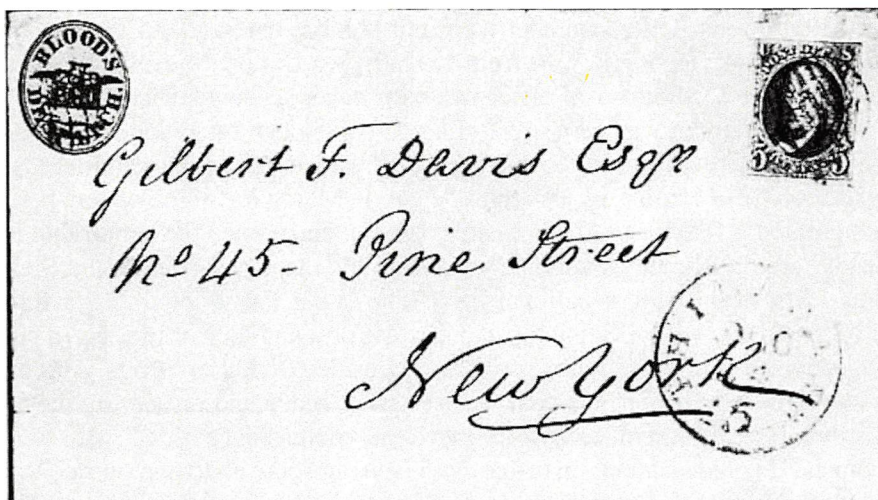 BLOOD'S
DESPATCH.
Gilbert F. Davis Esqr
No 45- Pine Street
New York
5
5 5